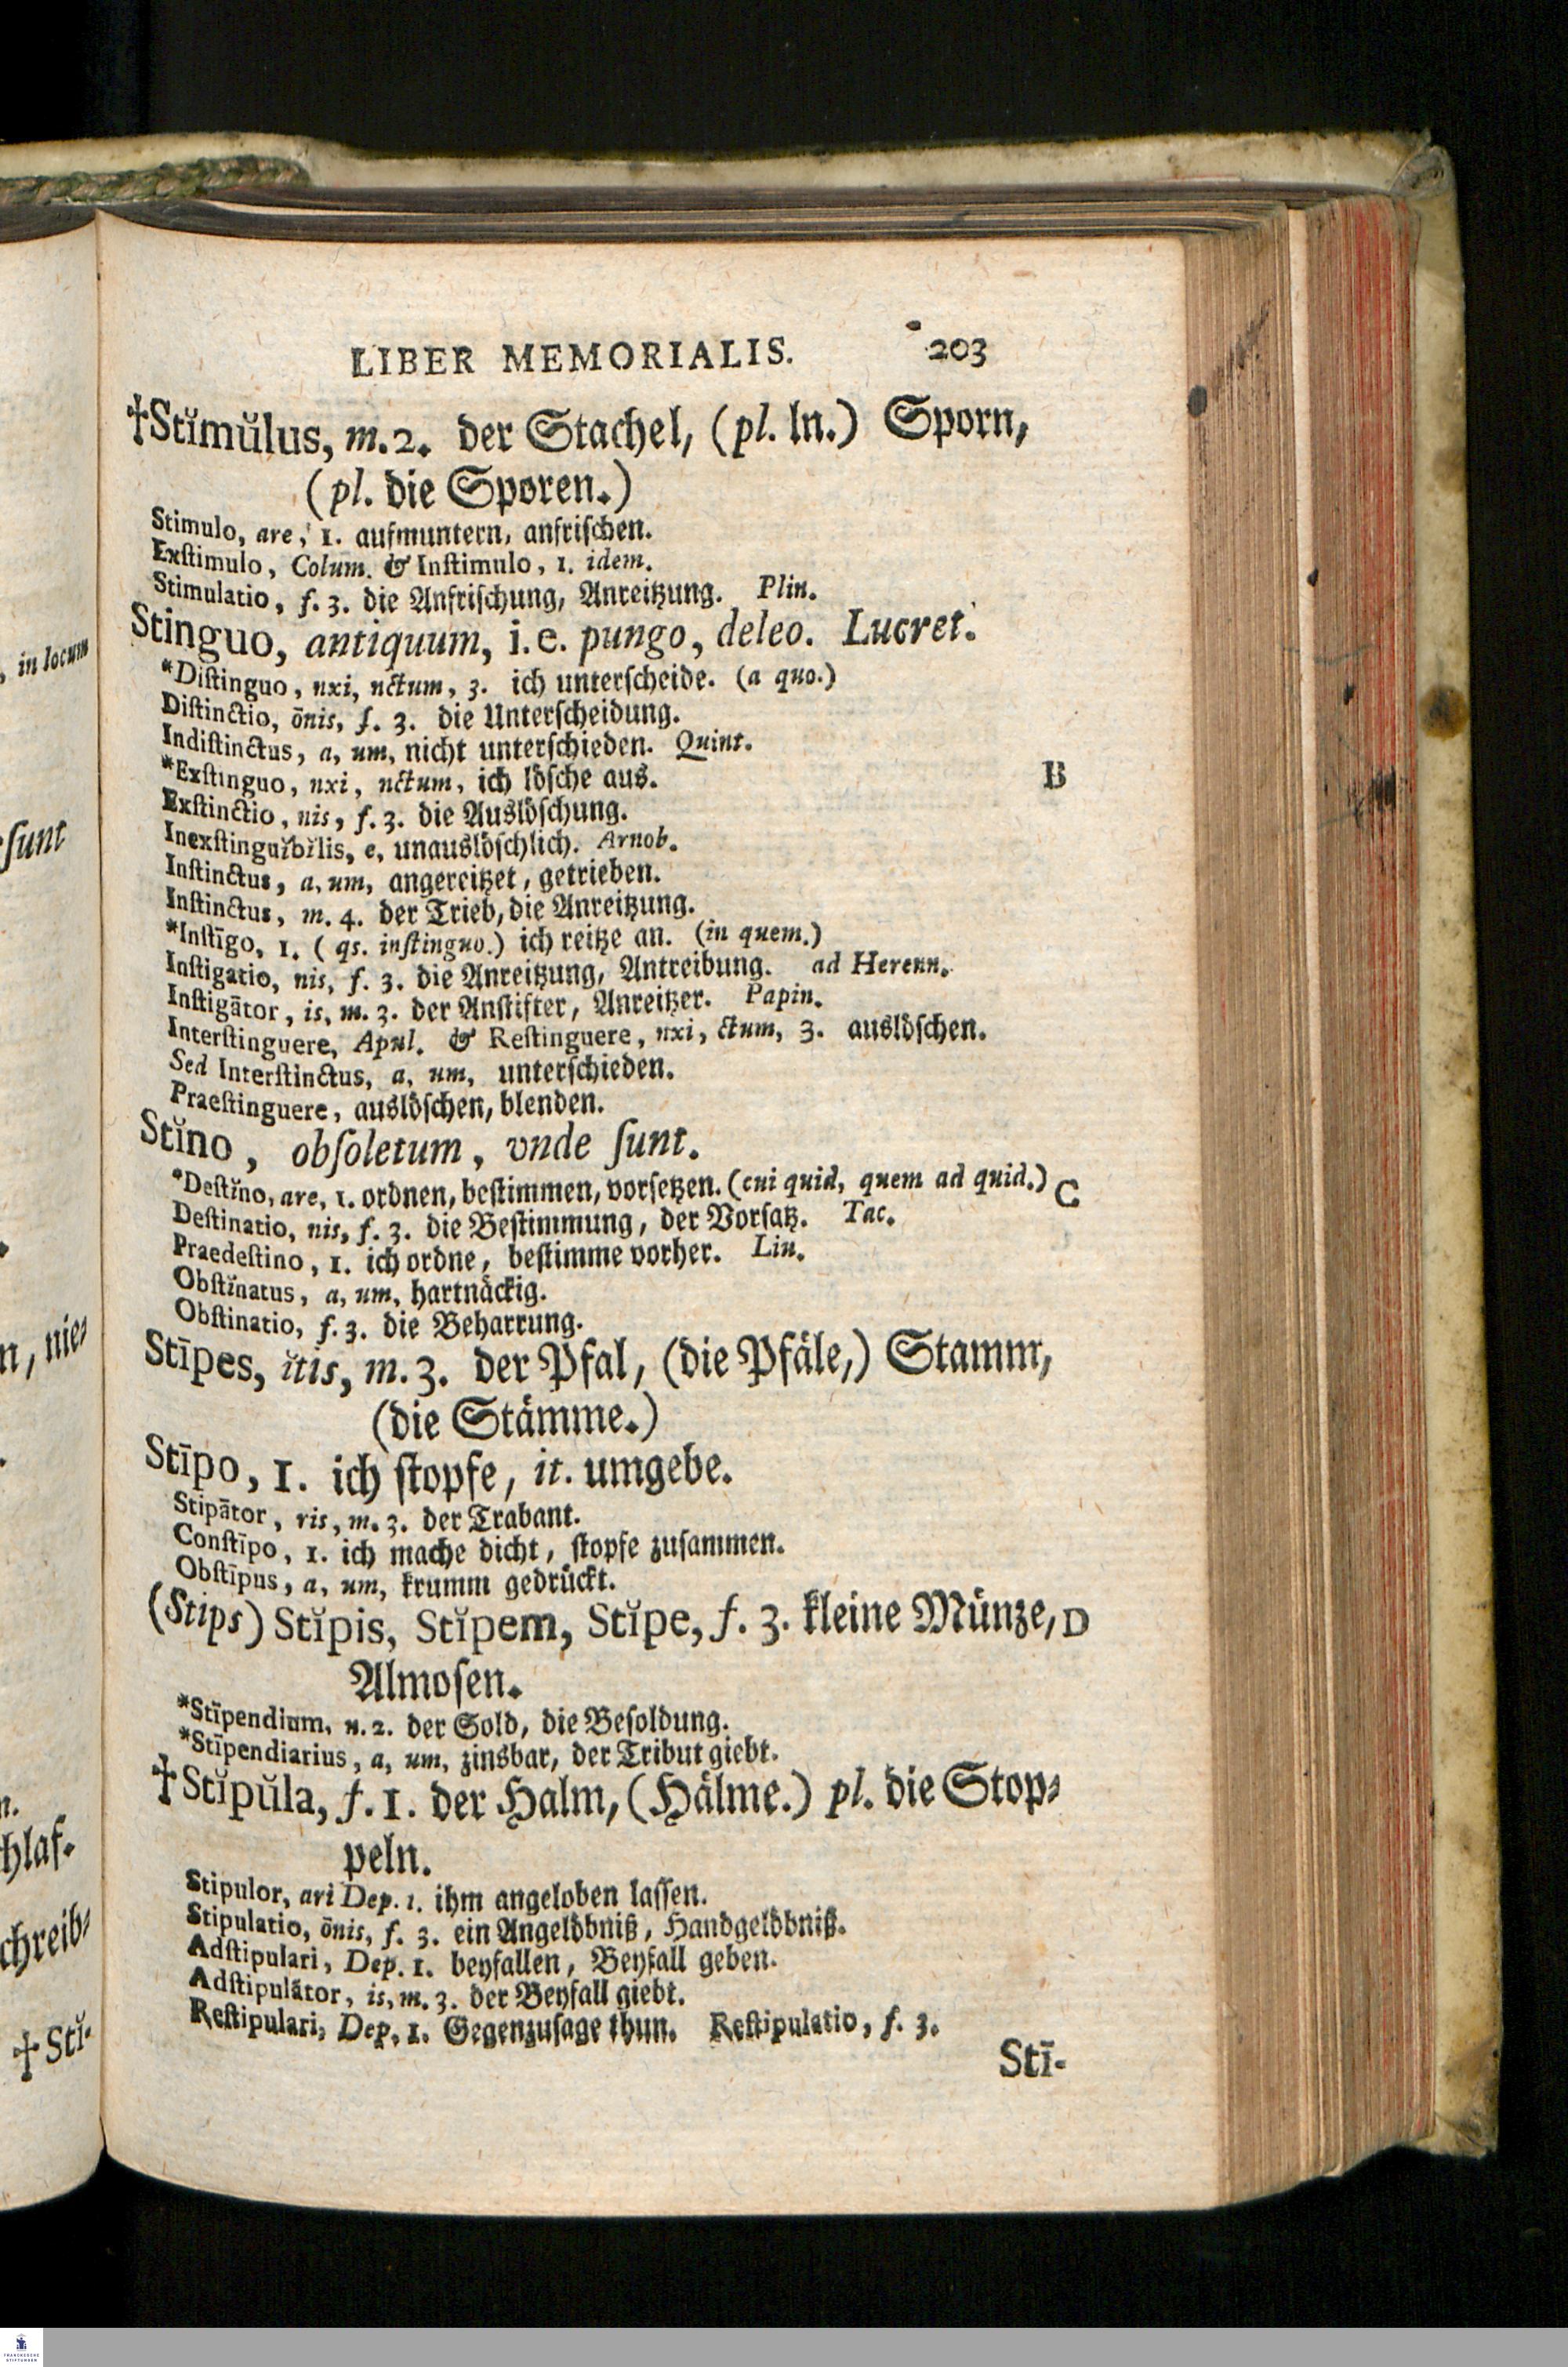 , in locum
sunt
n, nie⸗
n.
hlaf-
chreib⸗
†Stĭ-
LIBER MEMORIALIS. 203
†Stĭmŭlus, m. 2. der Stachel, (pl. ln.) Sporn,
(pl. die Sporen.)
Stimulo, are, 1. aufmuntern, anfrischen.
Exſtimulo, Colum. & Inſtimulo, 1. idem.
Stimulatio, f. 3. die Anfrischung, Anreitzung. Plin.
Stinguo, antiquum, i. e. pungo, deleo. Lucret.
*Diſtinguo, nxi, nctum, 3. ich unterſcheide. (a quo.)
Diſtinctio, ōnis, f. 3. die Unterſcheidung.
Indiſtinctus, a, um, nicht unterſchieden. Quint.
*Exſtinguo, nxi, nctum, ich löſche aus. B
Exſtinctio, nis, f. 3. die Auslöſchung.
Inexſtinguĭbĭlis, e, unauslöſchlich. Arnob.
Inſtinctus, a, um, angereitzet, getrieben.
Inſtinctus, m. 4. der Trieb, die Anreitzung.
*Inſtīgo, 1. (qs. inſtinguo.) ich reitze an. (in quem.)
Inſtigatio, nis, f. 3. die Anreitzung, Antreibung. ad Herenn.
Inſtigātor, is, m. 3. der Anſtifter, Anreitzer. Papin.
Interſtinguere, Apul. & Reſtinguere, nxi, ctum, 3. auslöſchen.
Sed Interſtinctus, a, um, unterſchieden.
Praeſtinguere, auslöſchen, blenden.
Stĭno, obſoletum, vnde ſunt.
*Deſtĭno, are, 1. ordnen, beſtimmen, vorſetzen. (cui quid, quem ad quid.) C
Deſtinatio, nis, f. 3. die Beſtimmung, der Vorſatz. Tac.
Praedeſtino, 1. ich ordne, beſtimme vorher. Liu.
Obſtĭnatus, a, um, hartnäckig.
Obſtinatio, f. 3. die Beharrung.
Stīpes, ĭtis, m. 3. der Pfal, (die Pfäle,) Stamm,
(die Stämme.)
Stīpo, 1. ich ſtopfe, it. umgebe.
Stipātor, ris, m. 3. der Trabant.
Conſtīpo, 1. ich mache dicht, ſtopfe zuſammen.
Obſtīpus, a, um, krumm gedrückt.
(Stips) Stĭpis, Stĭpem, Stĭpe, f. 3. kleine Münze, D
Almoſen.
*Stīpendium, n. 2. der Sold, die Beſoldung.
*Stīpendiarius, a, um, zinsbar, der Tribut giebt.
†Stĭpŭla, f. 1. der Halm, (Hälme.) pl. die Stop⸗
peln.
Stipulor, ari Dep. 1. ihm angeloben laſſen.
Stipulatio, ōnis, f. 3. ein Angelöbniß, Handgelöbniß.
Adſtipulari, Dep. 1. beyfallen, Beyfall geben.
Adſtipulātor, is, m. 3. der Beyfall giebt.
Reſtipulari, Dep. 1. Gegenzuſage thun. Reſtipulatio, f. 3.
Stī-
FRANCKESCHE
STIFTUNGEN